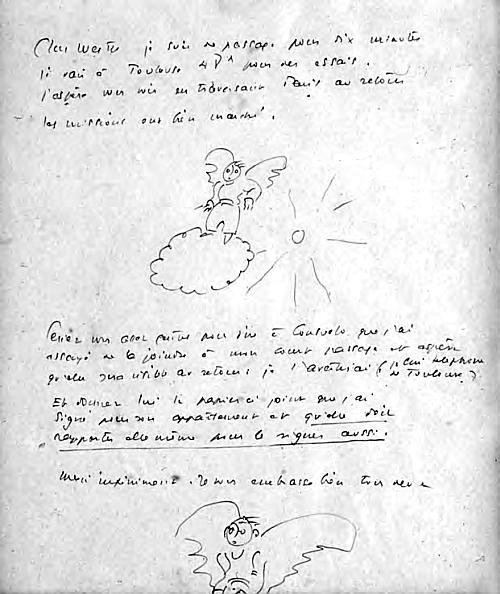 je suis de passage pour six minutes
Je vais à Toulouse pour des essais.
J'espère vous voir en traversant Paris au retour
les missions ont bien marché.
assez pour dire à Consuelo que j'ai
essayé de la joindre à mon court passage et espère
qu'elle sera visible au retour. je l'avertirai (je lui téléphone
de Toulouse)
Et donnez lui le papier ci joint que j'ai
signé pour son appartement et qu'elle doit
rapporter elle même pour le signer aussi.
Merci infiniment. Je vous embrasse bien